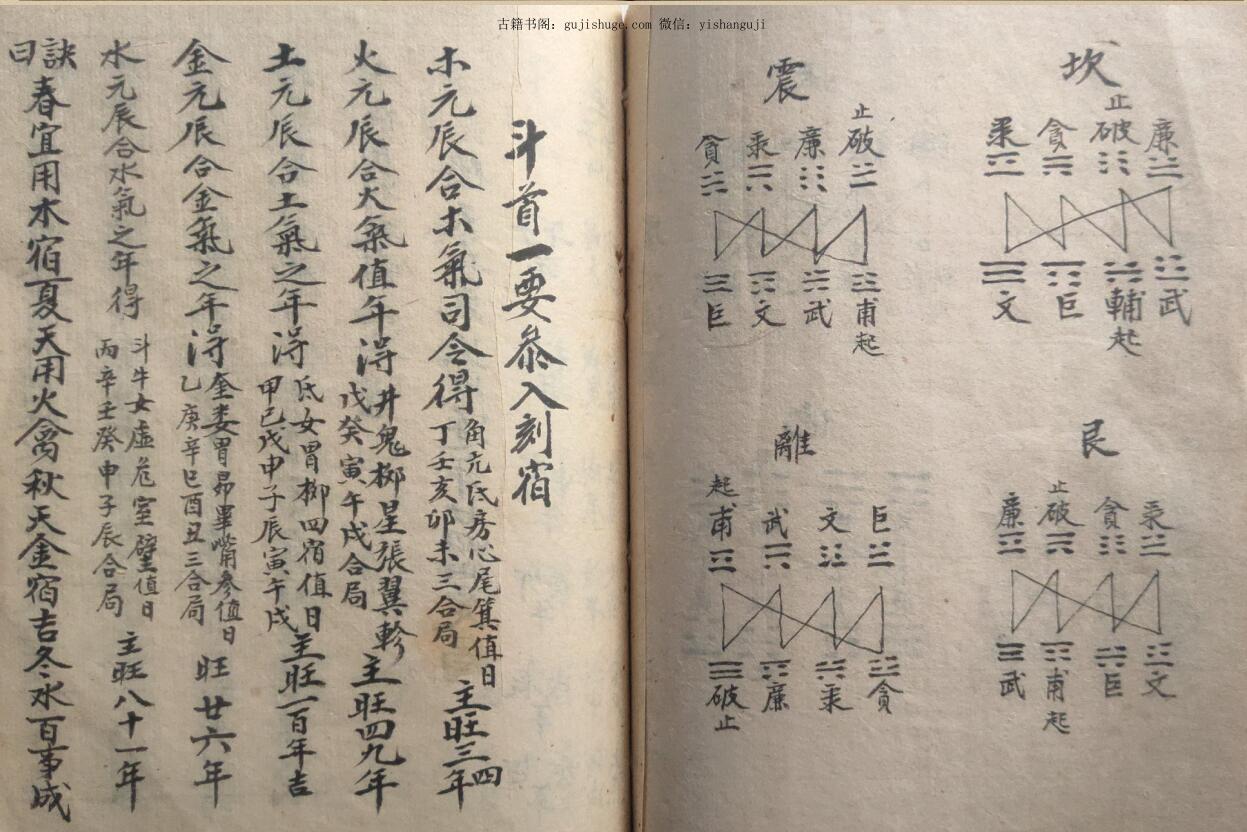 古籍书阁：gujishuge.com 微信：yishanguji
坎
廉
止破
貪
禄
武
輔起
巨
文
震
止破
廉
禄
貪
甫起
武
文
巨
艮
禄
貪
止破
廉
文
巨
甫起
武
離
巨
文
武
起甫
貪
禄
廉
破止
斗首一要叅入刻宿
木元辰合木氣司令得
角亢氐房心尾箕值日
丁壬亥卯未三合局
主旺三四年
火元辰合火氣值年得
井鬼柳星張翼軫
戊癸寅午戌合局
主旺四九年
土元辰合土氣之年得
氐女胃柳四宿值日
甲己戊申子辰寅午戌
主旺一百年吉
金元辰合金氣之年得
奎娄胃昴畢嘴參值日
乙庚辛巳酉丑三合局
旺廿六年
水元辰合水氣之年得
斗牛女虛危室壁值日
丙辛壬癸申子辰合局
主旺八十一年
訣曰春宜用木宿夏天用火禽秋天金宿吉冬水百事成